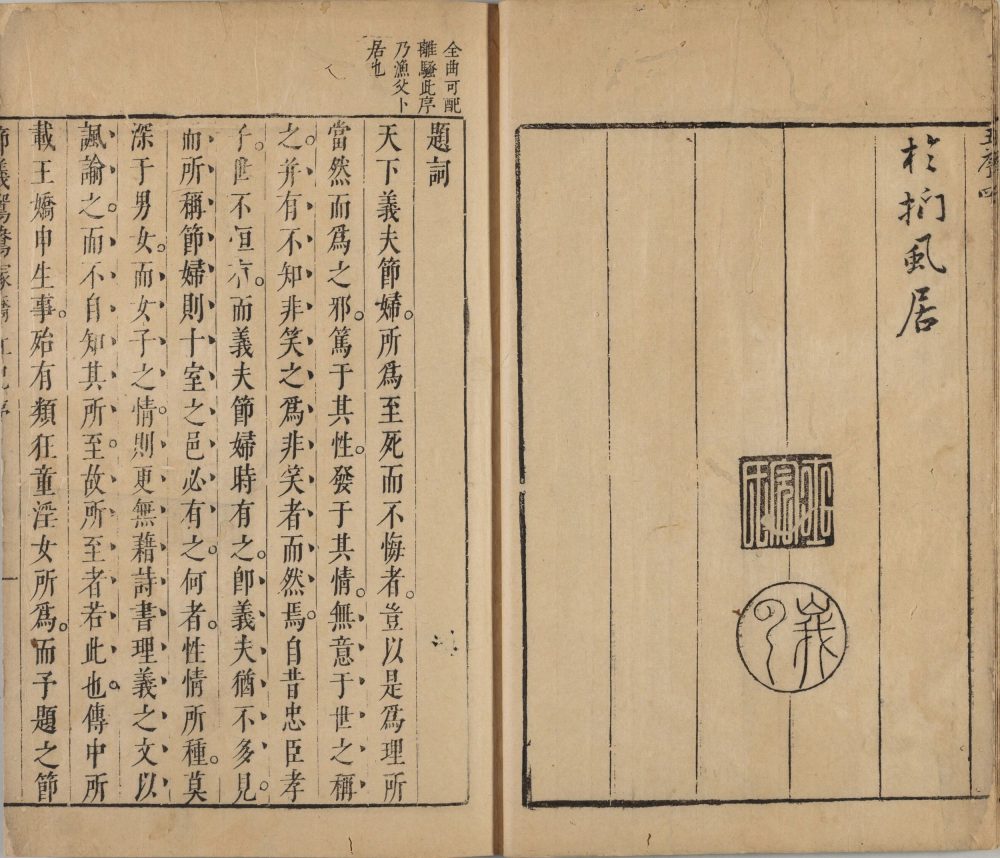 於搁風居
全曲可配
離騷此序
乃漁父卜
居也
題詞
天下義夫節婦。所爲至死而不悔者。豈以是爲理所
當然而爲之邪。篤于其性。發于其情。無意于世之稱
之。并有不知非笑之爲非笑者而然焉。自昔忠臣孝
子。世不恒有。而義夫節婦時有之。卽義夫猶不多見。
而所稱節婦則十室之邑必有之。何者。性情所種。莫
深于男女。而女子之情。則更無藉詩書理義之文以
諷諭之。而不自知其所至。故所至者若此也。傳中所
載王嬌申生事。殆有類狂童淫女所爲。而予題之節
節義鴛鴦塚嬌紅記序 一